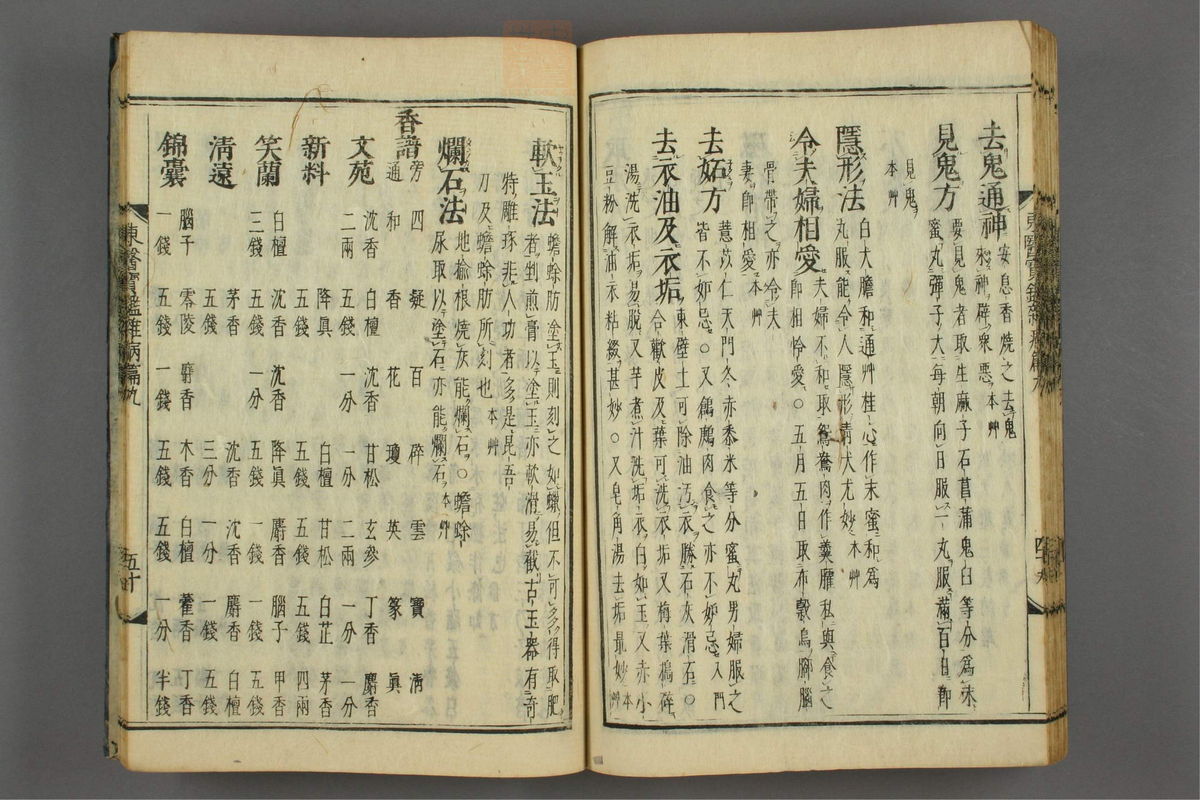 去鬼通神 安息香燒之去鬼
來神辟衆惡 本艸
見鬼方 要見鬼者取生麻子石菖蒲鬼臼等分爲末
蜜丸彈子大每朝向日服一丸服滿百日卽
見鬼 本艸
隱形法 白大膽和通艸桂心作末蜜和爲
丸服能令人隱形靑犬尤妙 本艸
令夫婦相愛 夫婦不和取鴛鴦肉作羹臛私與食之
卽相怜愛○五月五日取布穀鳥脚腦
骨帶之亦令夫
妻卽相愛 本艸
去妬方 薏苡仁天門冬赤黍米等分蜜丸男婦服之
皆不妬忌○又鶬鶊肉食之亦不妬忌 入門
去衣油及衣垢 東壁土可除油汚衣勝石灰滑石○
合歡皮及葉可洗衣垢又梅葉搗碎
湯洗衣垢易脫又芋煮汁洗垢衣白如玉又赤小
豆粉解油衣粘綴甚妙○又皂角湯去垢最妙 本艸
東醫寶鑑雜病篇九
四十九
軟玉法 蟾蜍肪塗玉則刻之如蠟但不可多得取肥
者剉煎膏以塗玉亦軟滑易截古玉器有奇
特雕琢非人功者多是昆吾
刀及蟾蜍肪所刻也 本艸
爛石法 地楡根燒灰能爛石○蟾蜍
尿取以塗石亦能爛石 本艸
香譜 旁通 四和 凝香 百花 碎瓊 雲英 寶篆 淸眞
文苑 沈香二兩 白檀五錢 沈香一分 甘松一分 玄參二兩 丁香一分 麝香一分
新料 降眞五錢 白檀五錢 甘松五錢 白芷五錢 茅香四兩
笑蘭 白檀三錢 沈香五錢 沈香一分 降眞五錢 麝香一錢 腦子一錢 甲香五錢
淸遠 茅香五錢 沈香三分 沈香一分 麝香一錢 白檀五錢
錦囊 腦子一錢 零陵五錢 麝香一錢 木香五錢 白檀五錢 藿香一分 丁香半錢
東醫寶鑑雜病篇九
五十